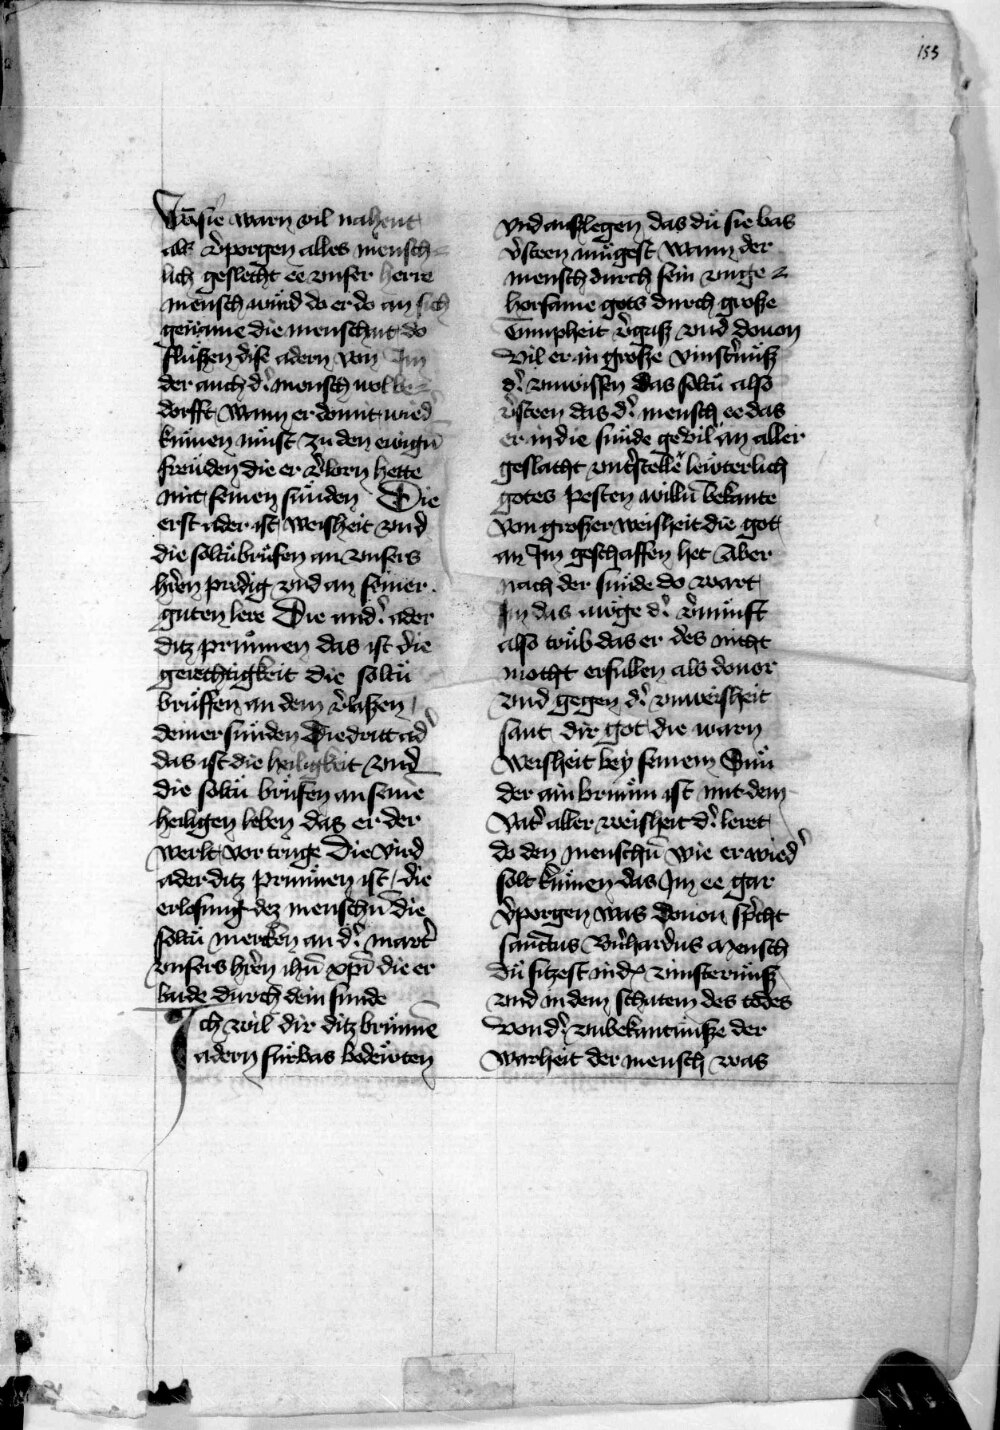 155
Wāsie warn vil nahent
als v̾porgen alles mensch
lich geslecht ee vnser herre
mensch würd do er do an sich
gename die menscheit do
flüßen dise adern von Im
der auch d̾ mensch wol be
dorfft Wann er domit wied̾
kumen müst zu den ewign̄
freüden die er v̾lorn hette
mit seinen sünden Die
erst ader ist Weisheit vnd
die soltu brüfen an vnsers
hr̄en predig vnd an seiner
guten lere Die and̾ ader
ditz prunnen das ist die
gerechtigkeit die soltü
brüffen an dem v̾laßen
deiner sünden Die dritt ad̾
das ist die heiligkeit vnd
die soltü brüfen an seinē
heiligen leben das er der
werlt vor truge Die vird
ader ditz prunnen ist die
erlosung dez menschn̄ die
soltü mercken an d̾ mart̾
vnsers hr̄en ihū xp̄i die er
laide durch dein sunde
Ich wil dir ditz brunnē
adern fürbas bedewten
vnd auslegen das dü sie bas
v̾steen mügest Wann der
mensch durch sein vnge
horsame gots durch große
tumpheit v̾gaß vnd douon
vil er in große vinst̾nüß
d̾ vnwissen Das soltü also
v̾steen das d̾ mensch ee das
er in die sünde geuil an aller
geslacht vnt̾stelle lewterlich
gotes pesten willn̄ bekante
von großer weisheit die got
an Im geschaffen het Aber
nach der sünde do wart
Im das auge d̾ v̾nünfft
also trüb das er des nicht
mocht erfullen als douor
vnd gegen d̾ vnweisheit
sant dir got die warn
Weisheit bey seinem Sun
der ain brunn ist mit dem
Vat̾ aller weisheit d̾ leret
do den menschn̄ wie er wied̾
solt kumen das Im ee gar
v̾porgen was Douon spricht
sanctus Bn̄hardus Mensch
du sitzest in d̾ vinsternüß
vnd in dem schatem des todes
von d̾ vnbekantnüße der
warheit der mensch was